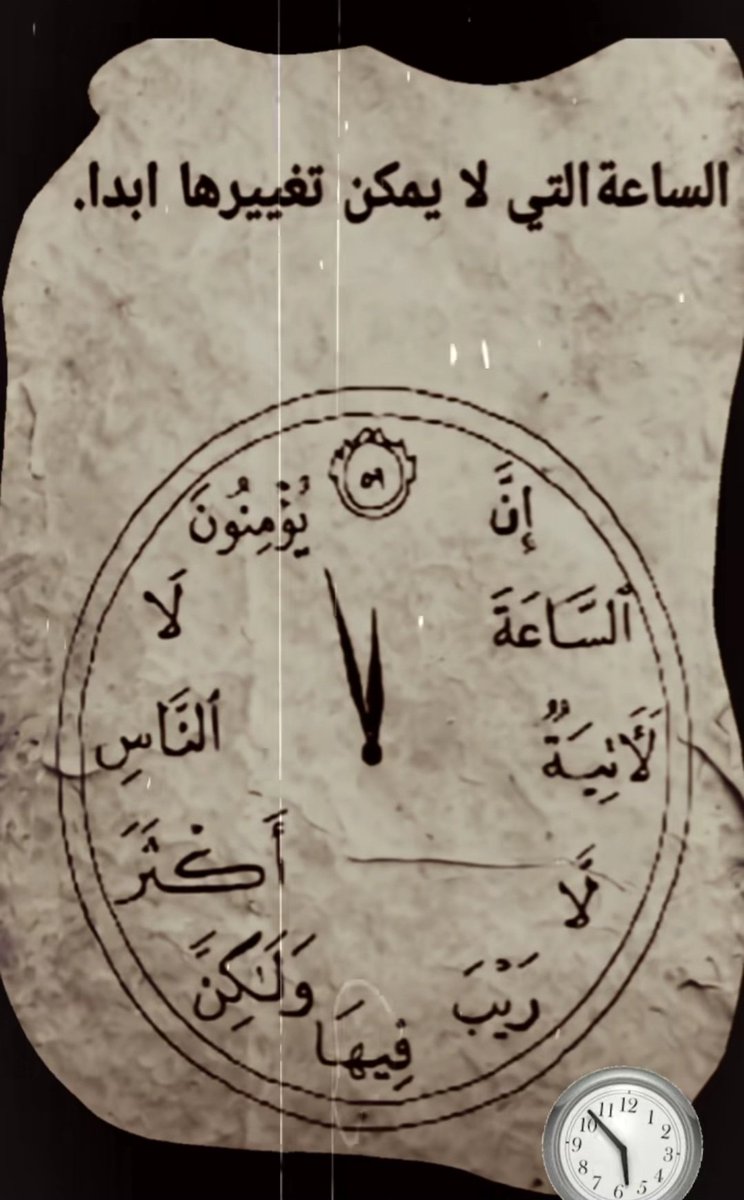 الساعة التي لا يمكن تغييرها ابدا.
٥٩
إِنَّ
ٱلسَّاعَةَ
لَـَٔاتِيَةٌ
لَّا
رَيْبَ
فِيهَا
وَلَـٰكِنَّ
أَكْثَرَ
ٱلنَّاسِ
لَا
يُؤْمِنُونَ
12
1
2
3
4
5
6
7
8
9
10
11